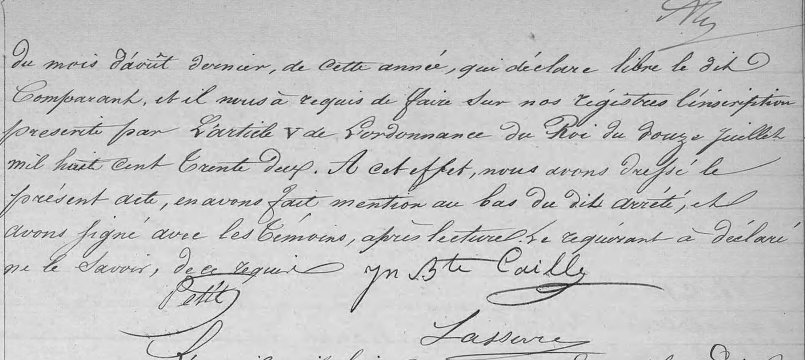 du mois d'août dernier, de cette année, qui déclare libre le dit
Comparant, et il nous à requis de faire sur nos régistres l'inscription
prescrite par L'article V de L'ordonnance du Roi du douze Juillet
mil huit cent Trente Deux. A cet effet, nous avons dressé le
présent acte, en avons fait mention au bas du dit arrêté, et
avons signé avec les Témoins, après lecture. Le requérant à déclaré
ne le savoir, de ce requis Jn Bte Cailly
Petit
Lasserre